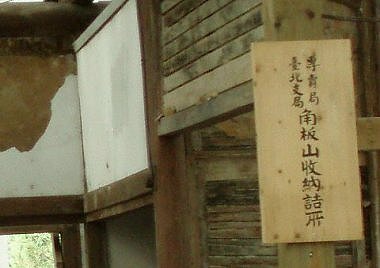 專賣局
臺北支局
角板山收納詰所